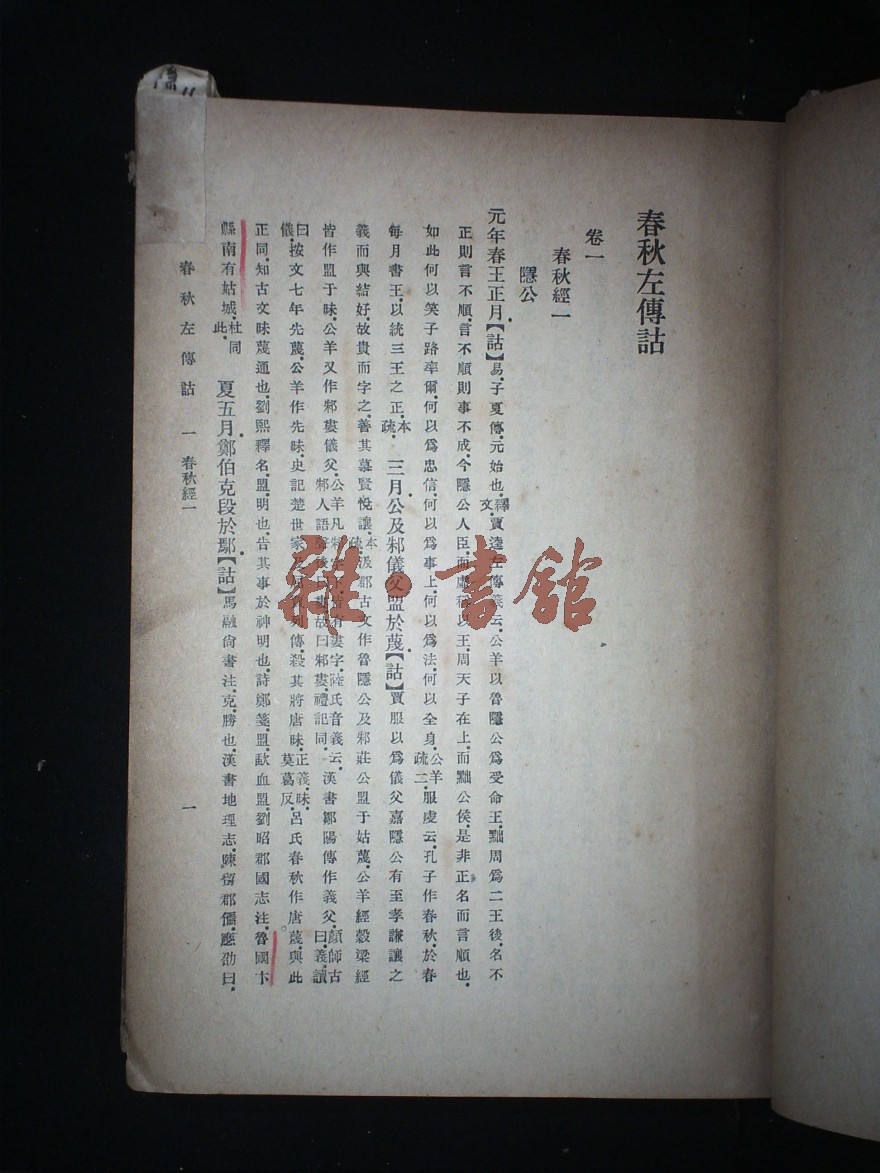 春秋左傳詁
卷一
春秋經一
隱公
元年春王正月【詁】易子夏傳.元始也.釋文.賈逵左傳義云.公羊以魯隱公爲受命王.黜周爲二王後.名不
正則言不順.言不順則事不成.今隱公人臣.而虛稱以王.周天子在上.而黜公侯.是非正名而言順也.
如此何以笑子路率爾.何以爲忠信.何以爲事上.何以爲法.何以全身.公羊疏二.服虔云.孔子作春秋.於春
每月書王.以統三王之正.本疏.三月公及邾儀父盟於蔑.【詁】賈服以爲儀父嘉隱公有至孝謙讓之
義而與結好.故貴而字之.善其慕賢悅讓.本疏.汲郡古文作魯隱公及邾莊公盟于姑蔑.公羊經穀梁經
皆作盟于眛.公羊又作邾婁儀父.公羊凡邾字下皆有婁字.陸氏音義云.邾人語聲後曰婁.故曰邾婁.禮記同.漢書鄒陽傳作義父.顏師古曰.義讀
曰儀.按文七年先蔑.公羊作先眛.史記楚世家及屈列傳.殺其將唐眛.正義.眛.莫葛反.呂氏春秋作唐蔑.與此
正同.知古文眛蔑通也.劉熙釋名.盟.明也.告其事於神明也.詩鄭箋.盟.歃血盟.劉昭郡國志注.魯國卞
縣南有姑城.杜同此.夏五月.鄭伯克段於鄢【詁】馬融尙書注.克.勝也.漢書地理志.陳留郡傿.應劭曰.
春秋左傳詁 一 春秋經一 一
雜·書館